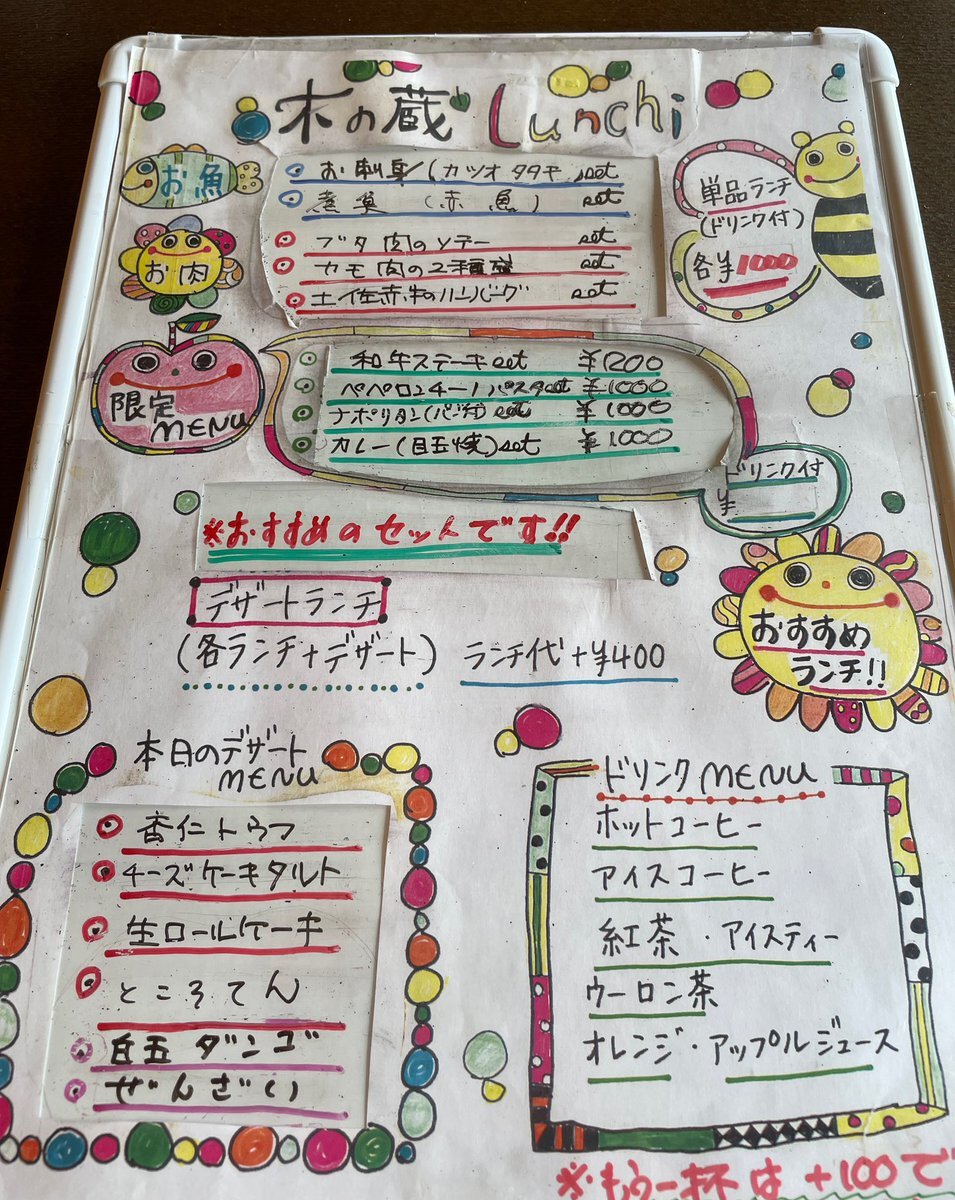 木の蔵 Lunchi
お魚
お刺身(カツオタタキ) set
煮魚 (赤魚) set
お肉
ブタ肉のソテー set
カモ肉の2種盛 set
土佐赤牛のハンバーグ set
単品ランチ
(ドリンク付)
各¥1000
限定
MENU
和牛ステーキset ¥1200
ペペロンチーノパスタset ¥1000
ナポリタン set ¥1000
カレー(目玉焼)set ¥1000
ドリンク付
¥
※おすすめのセットです!!
デザートランチ
(各ランチ+デザート) ランチ代+¥400
おすすめ
ランチ!!
本日のデザート
MENU
杏仁トウフ
チーズケーキタルト
生ロールケーキ
ところてん
白玉ダンゴ
ぜんざい
ドリンクMENU
ホットコーヒー
アイスコーヒー
紅茶・アイスティー
ウーロン茶
オレンジ・アップルジュース
※もう一杯は+100で